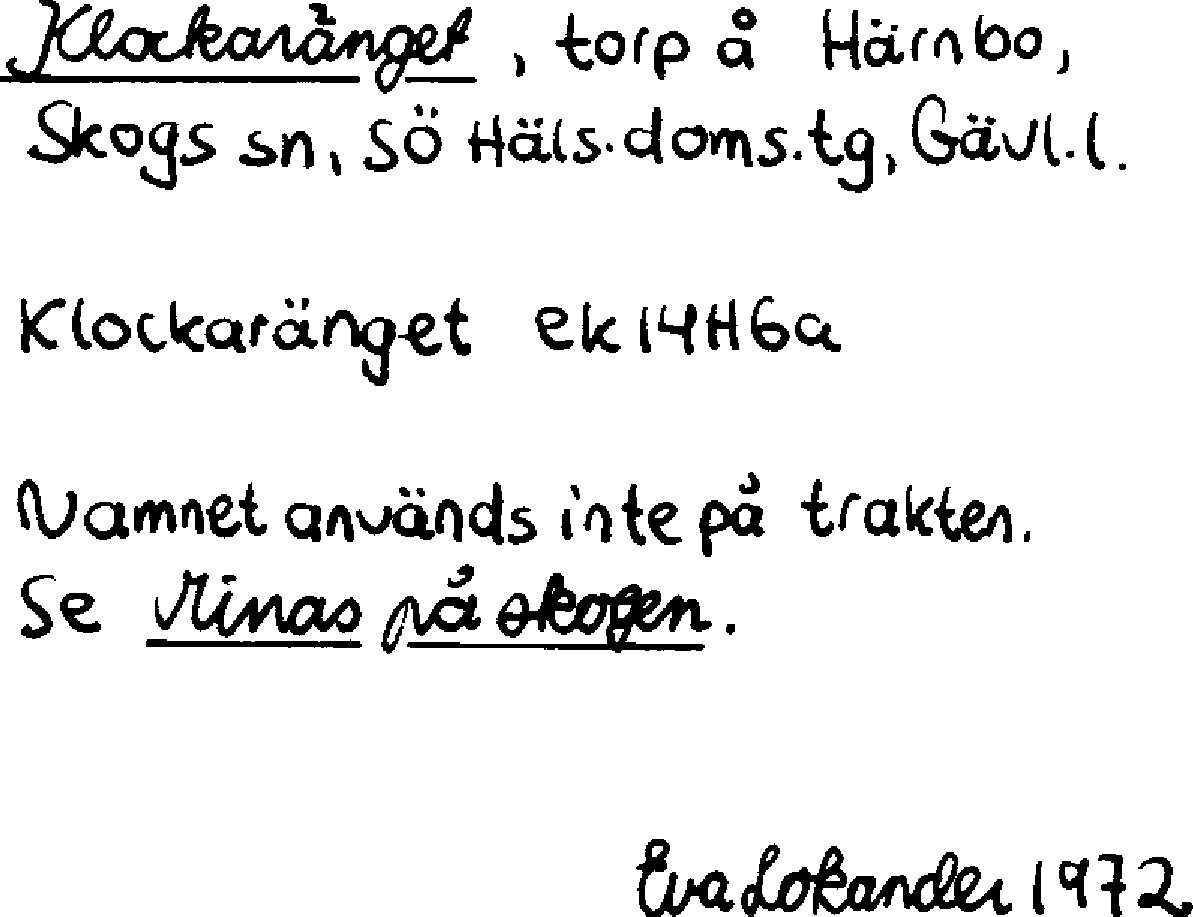 Klockaränget, torp å Härnbo,
Skogs sn, Sö Häls.doms.tg, Gävl.l.
Klockaränget ek 14H6a
Namnet används inte på trakten.
Se Minas på skogen.
Eva Lokander 1972